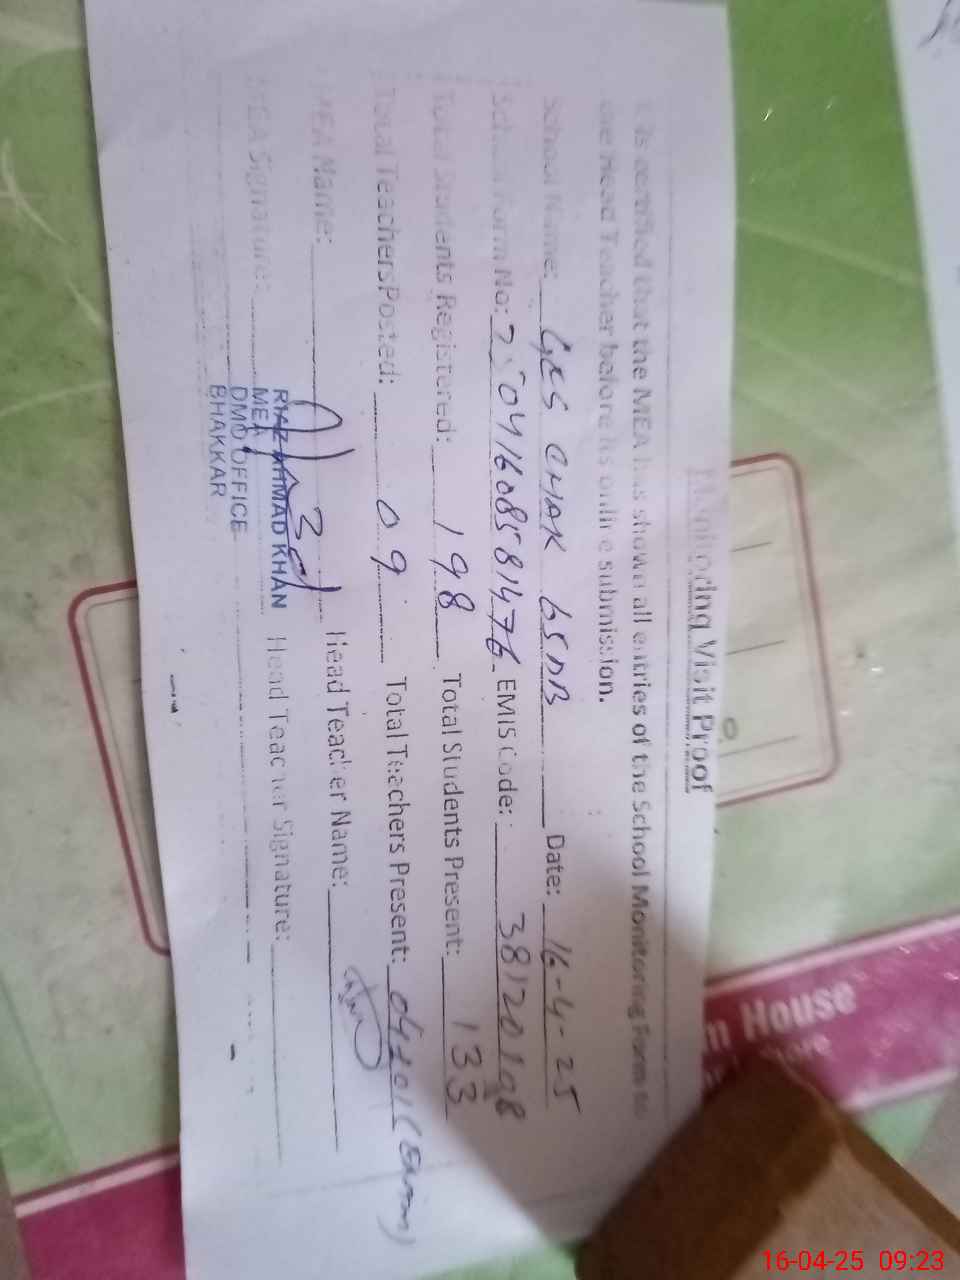 Monitoring Visit Proof
It is certified that the MEA has shown all entries of the School Monitoring Form to
the Head Teacher before its online submission.
School Name: GES CHAK 65 DB Date: 16-4-25
School Form No: EMIS Code: 38120198
Total Students Registered: 198 Total Students Present: 133
Total Teachers Posted: 09 Total Teachers Present: 04+01 (Exam)
MEA Name: Head Teacher Name:
MEA Signature: Head Teacher Signature:
RIAZ AHMAD KHAN
MEA
DMO OFFICE
BHAKKAR
House
16-04-25 09:23